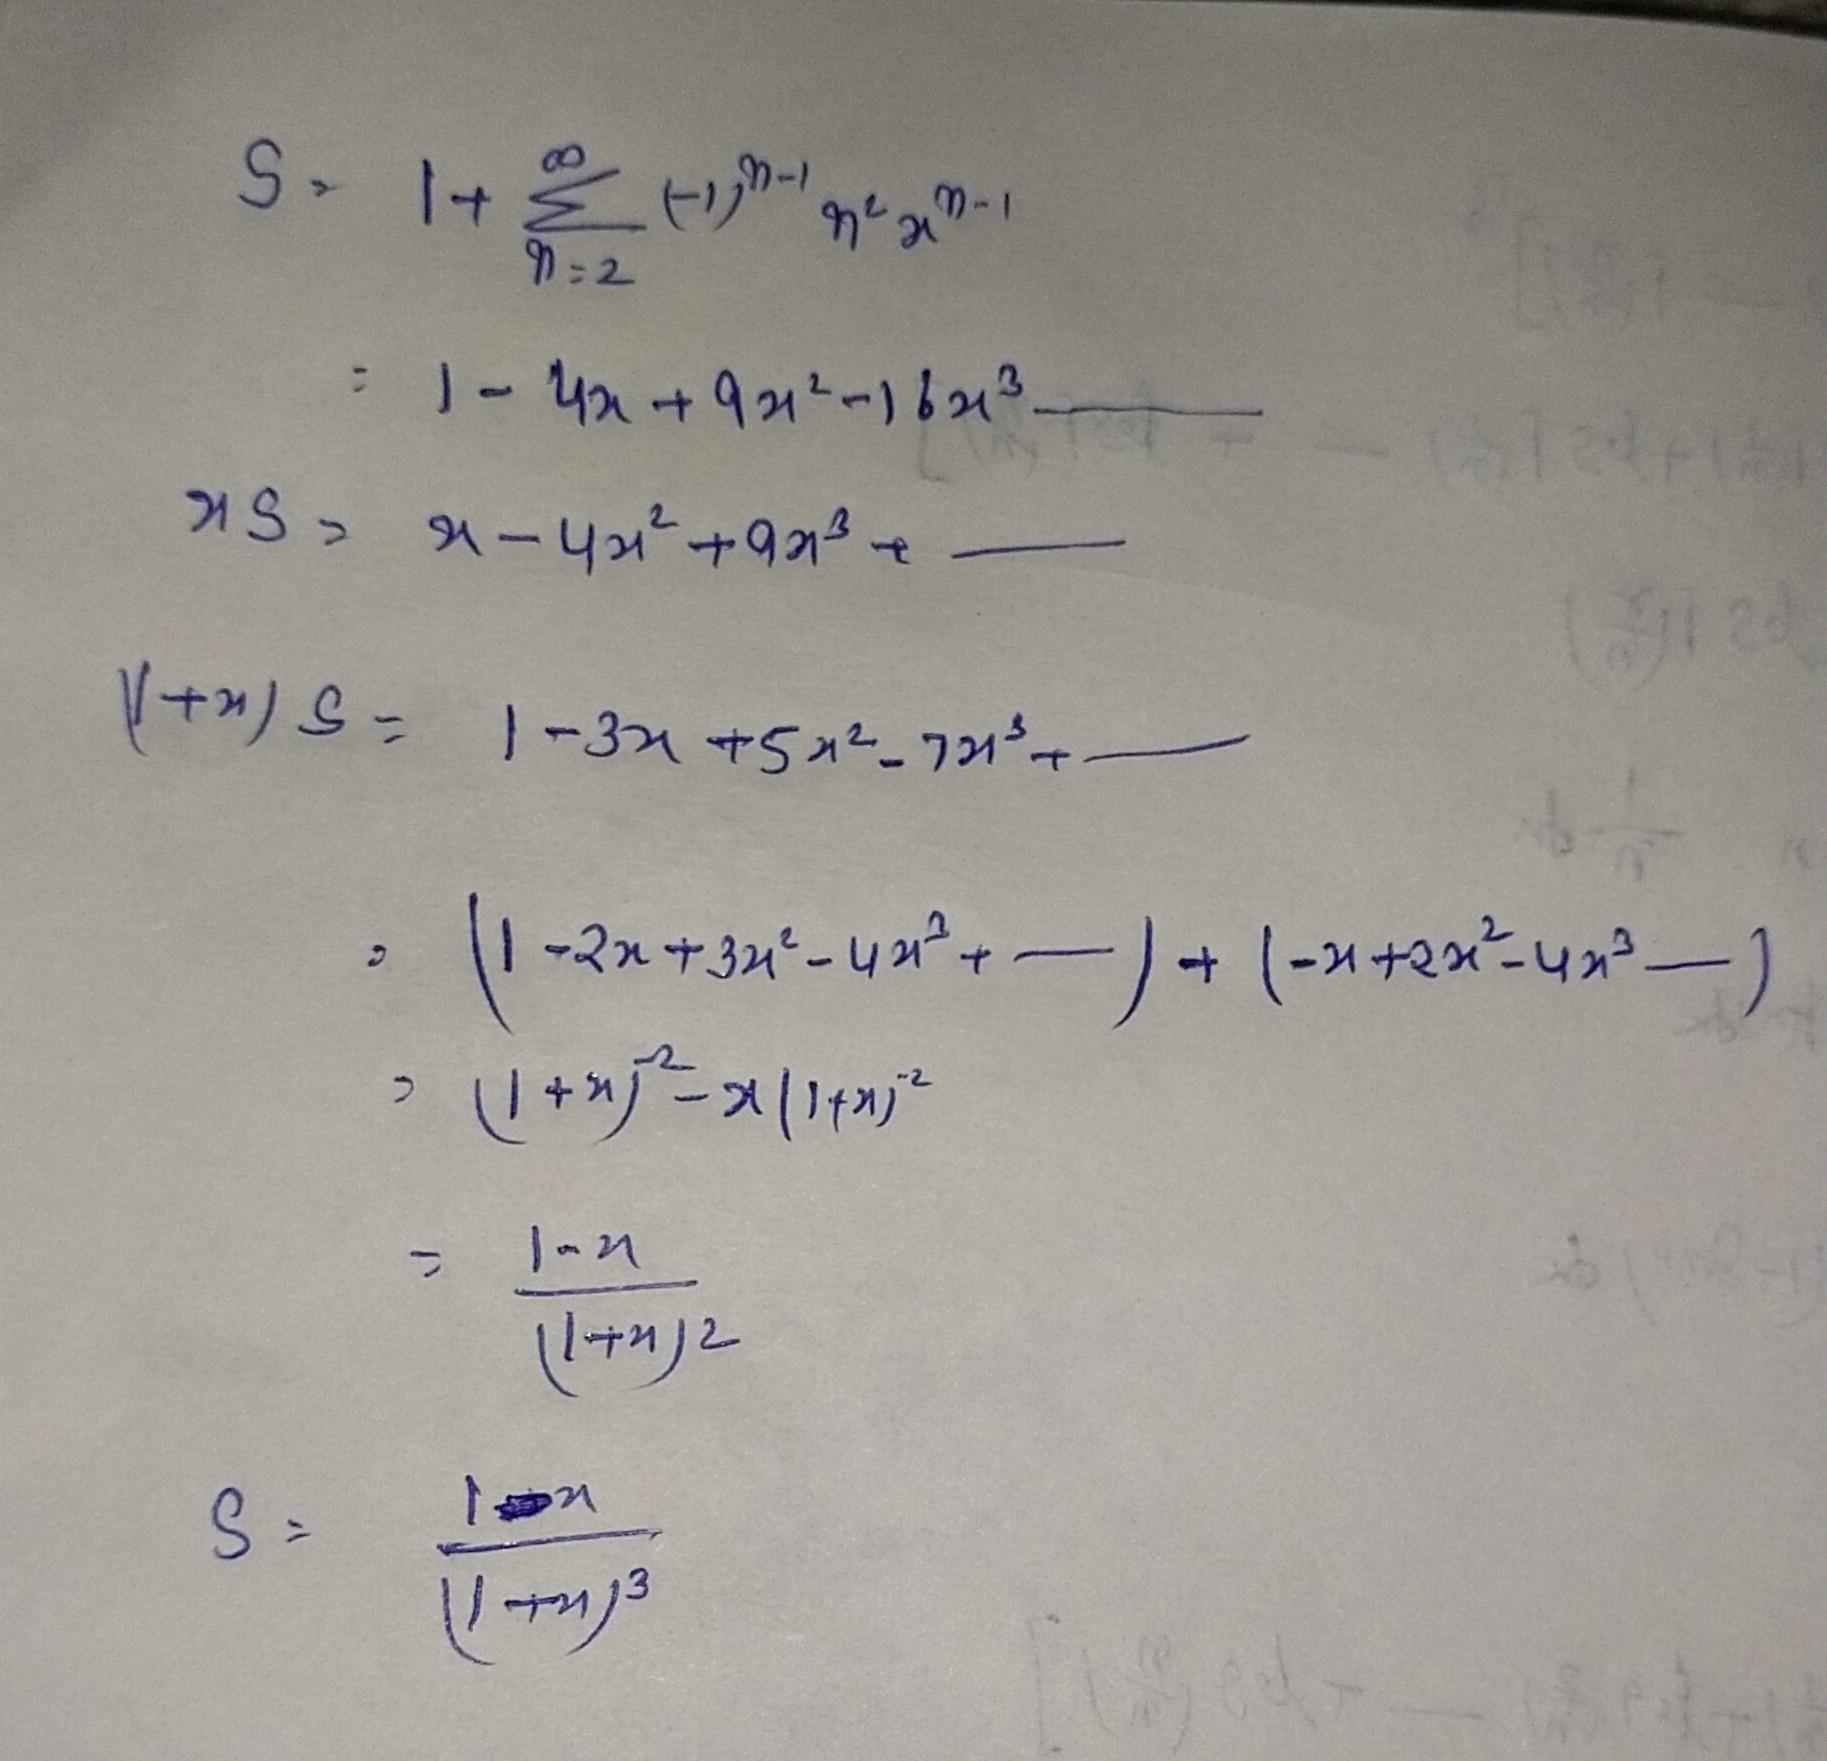 S = 1 + ∞Σn=2 (-1)^n-1 n² x^n-1
= 1 - 4x + 9x² - 16x³ ———
xS = x - 4x² + 9x³ + ———
(1+x) S = 1 - 3x + 5x² - 7x³ + ———
= (1 - 2x + 3x² - 4x³ + —) + (-x + 2x² - 4x³ —)
= (1+x)^-2 - x(1+x)^-2
= 1-x / (1+x)2
S = 1-x / (1+x)³